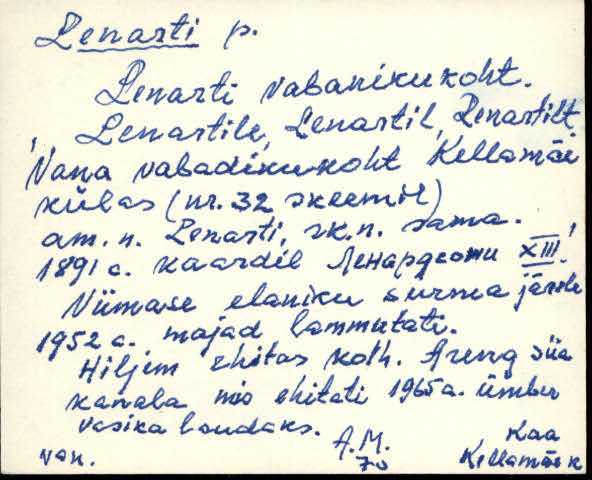 Lenarti p.
Lenarti vabanikukoht.
Lenartile, Lenartil, Lenartilt
'Vana vabadikukoht Kellamäe
külas (nr. 32 skeemil)
am. n. Lenarti, rk.n. sama.
1891 a. kaardil Ленардсоти XIII!'
Viimase elaniku surma järele
1952 a. majad lammutati.
Hiljem ehitas kolh. Areng siia
kanala mis ehitati 1965a. ümber
vasika laudaks.
van. A.M. Kaa
70 Kellamäe k